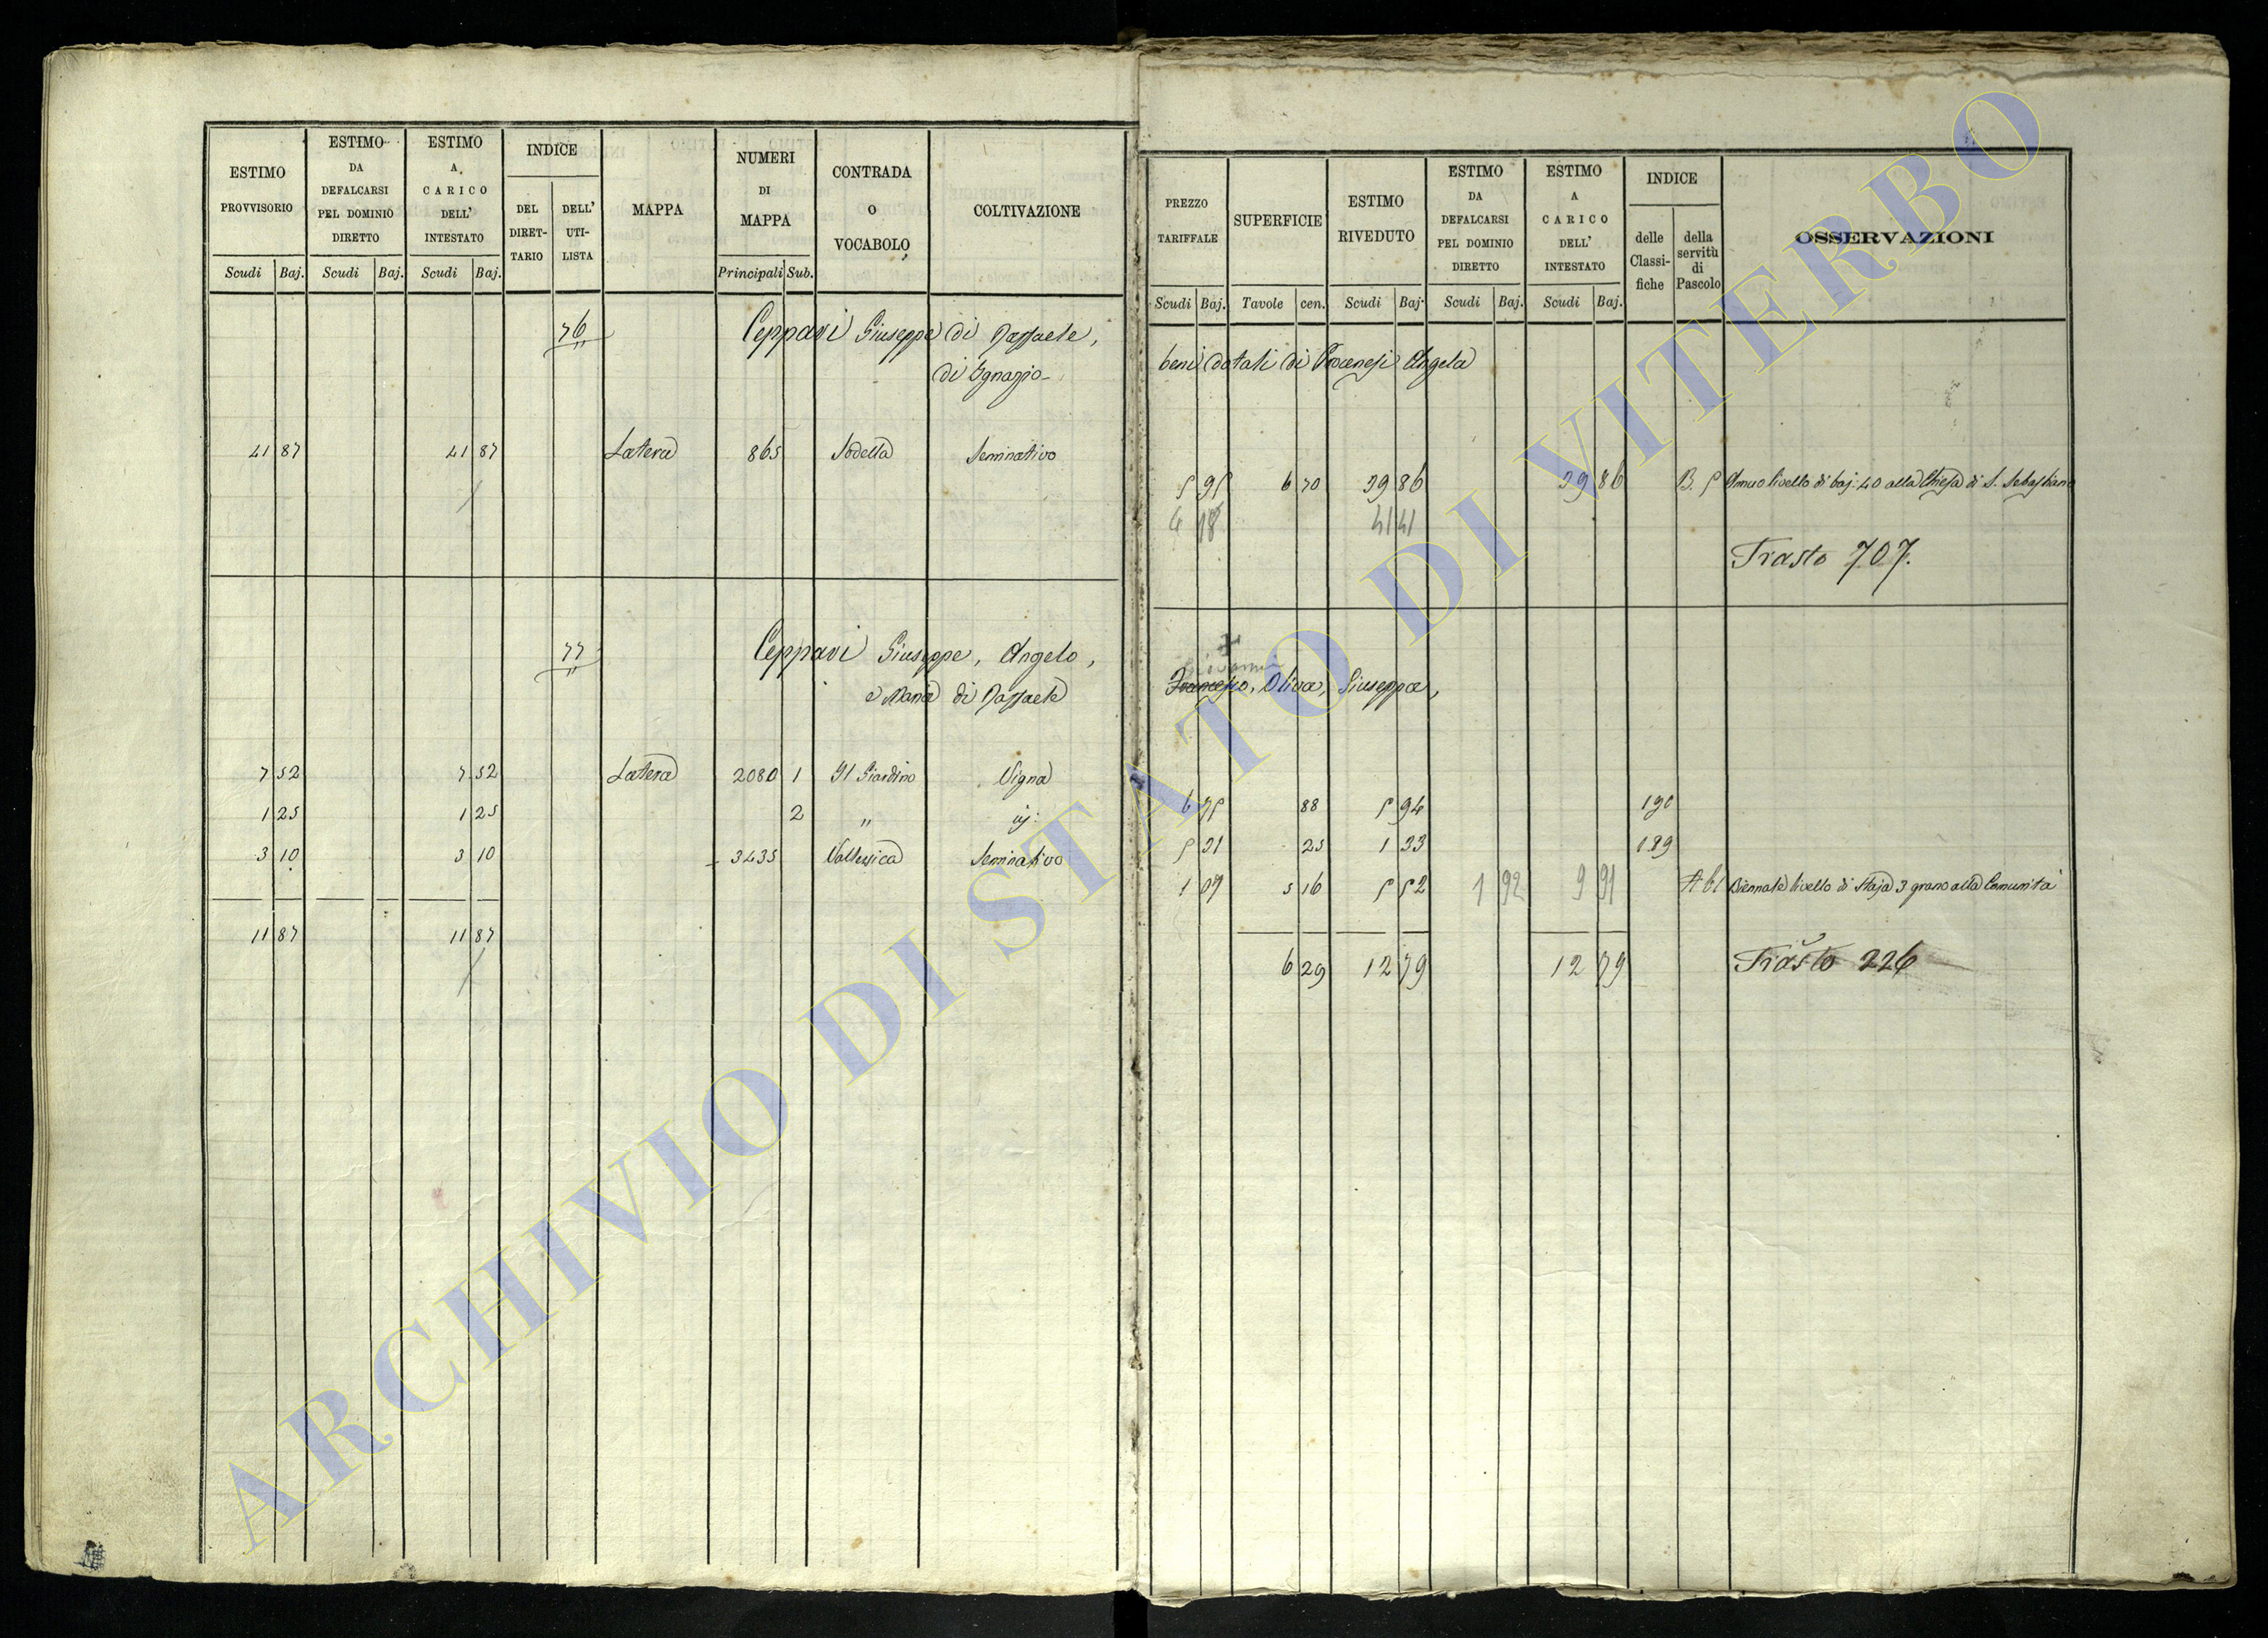 ESTIMO PROVVISORIO
ESTIMO DA DEFALCARSI PEL DOMINIO DIRETTO
ESTIMO A CARICO DELL' INTESTATO
INDICE
DEL DIRET-TARIO
DELL' UTI-LISTA
MAPPA
NUMERI DI MAPPA
CONTRADA O VOCABOLO
COLTIVAZIONE
Scudi Baj. Scudi Baj. Scudi Baj. Principali Sub.
76 Ceppari Giuseppe di Raffaele,
di Ignazio
41 87 41 87 Latera 865 Sodella Seminativo
77 Ceppari Giuseppe, Angelo,
e Maria di Raffaele
7 52 7 52 Latera 2080 1 Il Giardino Vigna
1 25 1 25 2 " id:
3 10 3 10 3435 Seminativo
11 87 11 87
PREZZO TARIFFALE
SUPERFICIE
ESTIMO RIVEDUTO
ESTIMO DA DEFALCARSI PEL DOMINIO DIRETTO
ESTIMO A CARICO DELL' INTESTATO
INDICE
delle Classi-fiche
della servitù di Pascolo
OSSERVAZIONI
Scudi Baj. Tavole cen. Scudi Baj. Scudi Baj. Scudi Baj.
beni dotali di Procenesi Angela
5 95 6 70 39 86 39 86 B. 5 Annuo livello di baj: 40 alla Chiesa di S. Sebastiano
6 18 41 41
Trasto 707.
Giovanni
Francesco, Oliva, Giuseppa,
6 75 88 5 94 190
5 31 25 1 33 189
1 07 5 16 5 52 1 92 9 91 A 61 Biennale livello di Staja 3 grano alla Comunità
6 29 12 79 12 79 Trasto 226
ARCHIVIO DI STATO DI VITERBO